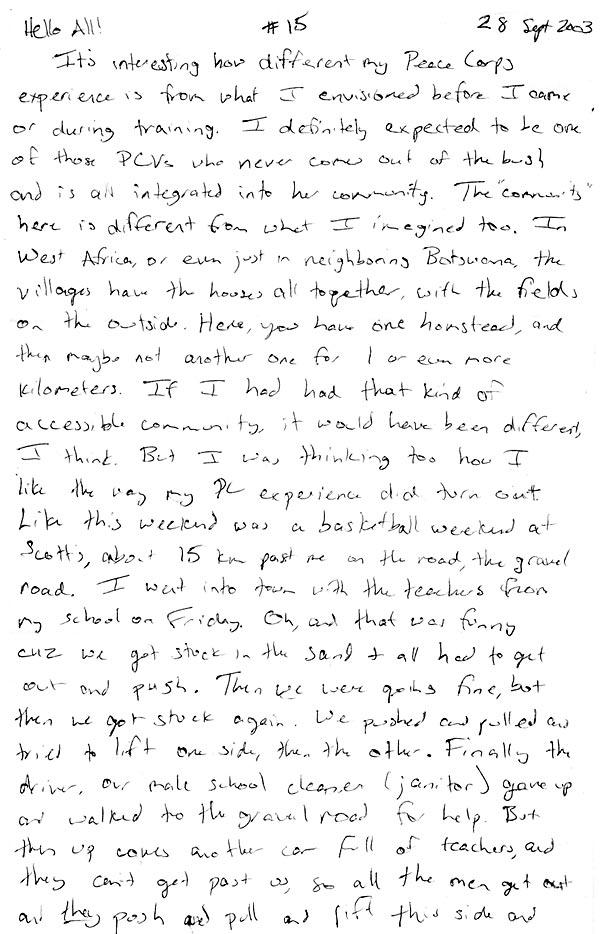 Hello All! #15 28 Sept 2003
It's interesting how different my Peace Corps
experience is from what I envisioned before I came
or during training. I definitely expected to be one
of those PCVs who never comes out of the bush
and is all integrated into her community. The "community"
here is different from what I imagined too. In
West Africa, or even just in neighboring Botswana, the
villages have the houses all together, with the fields
on the outside. Here, you have one homstead, and
then maybe not another one for 1 or even more
kilometers. If I had had that kind of
accessible community, it would have been different,
I think. But I was thinking too how I
like the way my PC experience did turn out.
Like this weekend was a basketball weekend at
Scott's, about 15 km past me on the road, the gravel
road. I went into town with the teachers from
my school on Friday. Oh, and that was funny
cuz we got stuck in the sand & all had to get
out and push. Then we were going fine, but
then we got stuck again. We pushed and pulled and
tried to lift one side, then the other. Finally the
driver, our male school cleaner (janitor) gave up
and walked to the gravel road for help. But
then up comes another car full of teachers, and
they can't get past us, so all the men get out
and they push and pull and lift this side and